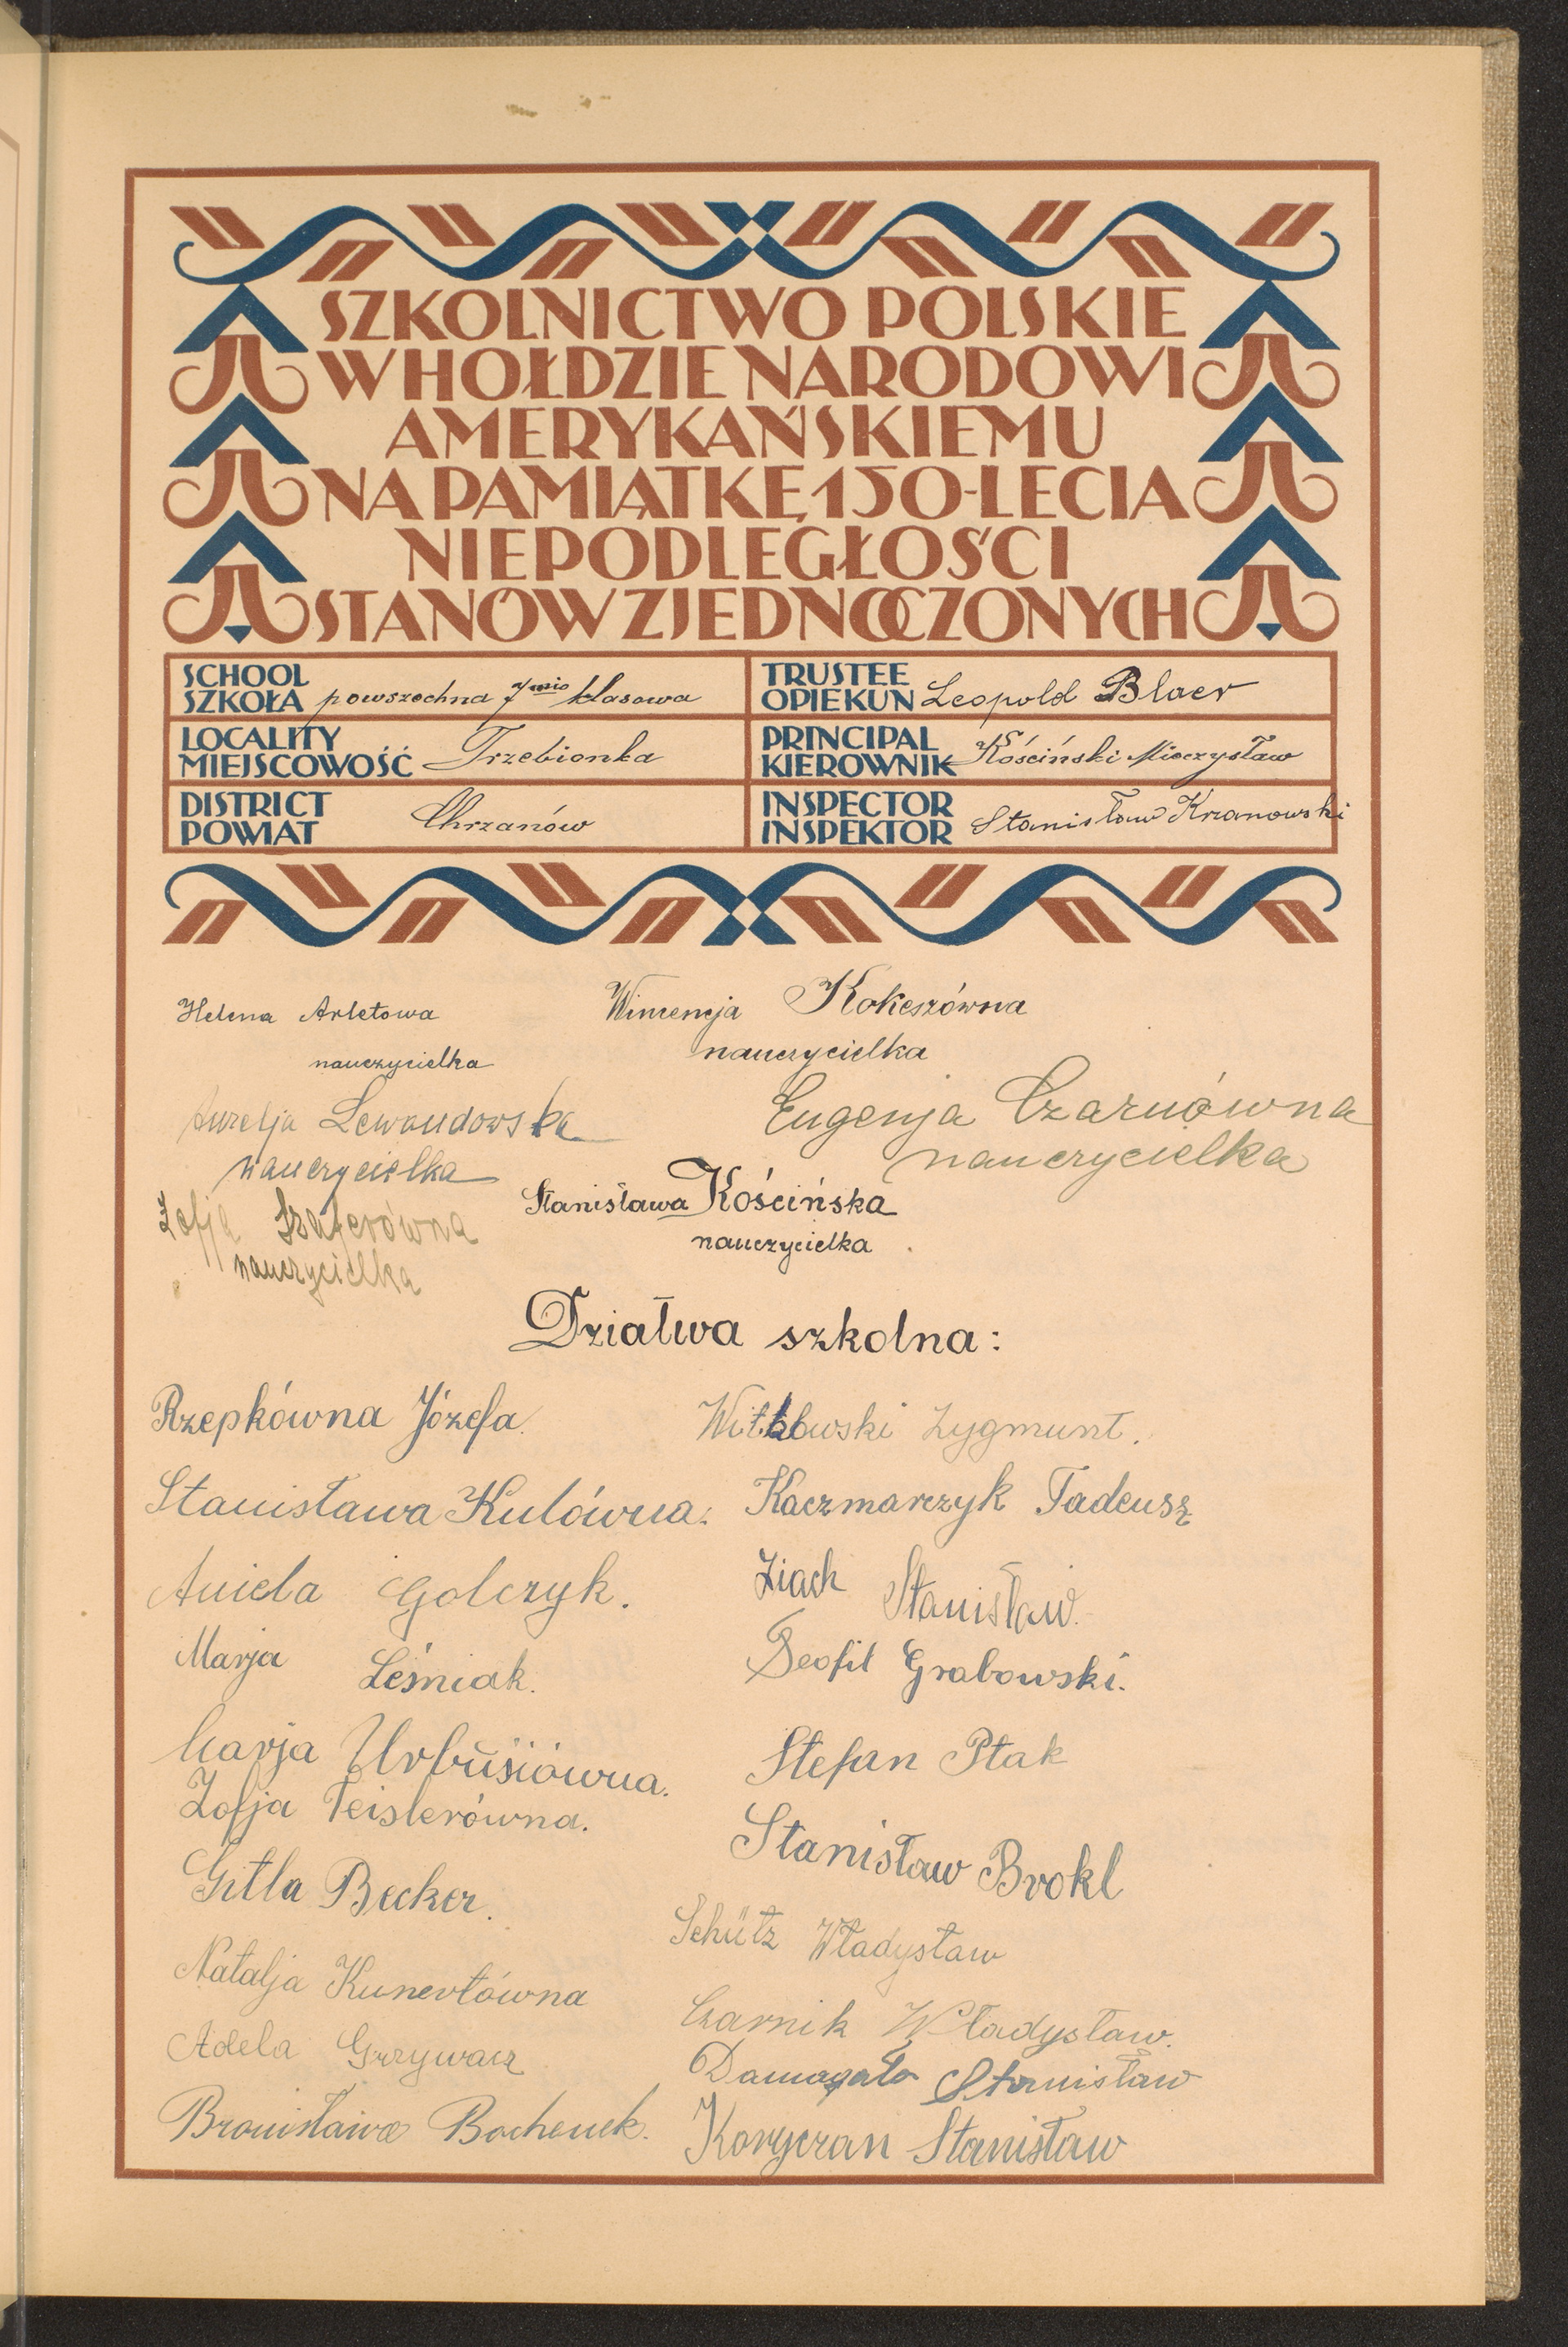 SZKOLNICTWO POLSKIE
W HOŁDZIE NARODOWI
AMERYKAŃSKIEMU
NA PAMIĄTKĘ 150-LECIA
NIEPODLEGŁOŚCI
STANÓW ZJEDNOCZONYCH
SCHOOL
SZKOŁA powszechna 7mio klasowa
TRUSTEE
OPIEKUN Leopold Blaer
LOCALITY
MIEJSCOWOŚĆ Trzebionka
PRINCIPAL
KIEROWNIK Kościński Mieczysław
DISTRICT
POWIAT Chrzanów
INSPECTOR
INSPEKTOR Stanisław Kranowski
Helena Arletowa
nauczycielka
Wincencja Kokeszówna
nauczycielka
Aurelja Lewandowska
nauczycielka
Eugenja Czarnówna
nauczycielka
Zofja Szaferówna
nauczycielka
Stanisława Kościńska
nauczycielka
Dziatwa szkolna:
Rzepkówna Józefa.
Witkowski Zygmunt.
Stanisława Kulówna.
Kaczmarczyk Tadeusz
Aniela Golczyk.
Ziach Stanisław.
Marja Leśniak.
Teofil Grabowski.
Marja Urbusiówna.
Stefan Ptak
Zofja Teislerówna.
Stanisław Brokl
Gitla Becker.
Schütz Władysław
Natalja Kunertówna
Czarnik Władysław.
Adela Grzywacz
Damagała Stanisław
Bronisława Bochenek.
Koryczan Stanisław